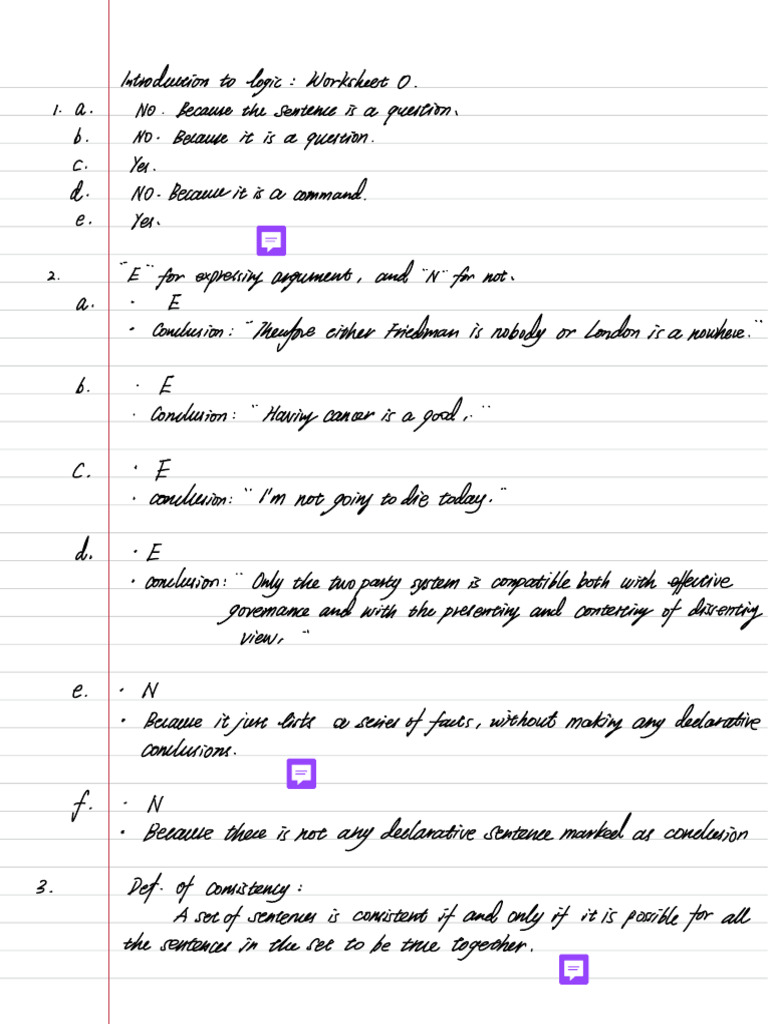 Introduction to logic : Worksheet 0.
1. a. NO. Because the sentence is a question.
b. NO. Because it is a question.
c. Yes.
d. NO. Because it is a command.
e. Yes.
2. "E" for expressing argument, and "N" for not.
a. · E
· Conclusion: "Therefore either Friedman is nobody or London is a nowhere."
b. · E
· Conclusion: "Having cancer is a good."
C. · E
· conclusion: "I'm not going to die today."
d. · E
· conclusion: "Only the two party system is compatible both with effective
governance and with the presenting and contesting of dissenting
view."
e. · N
· Because it just lists a series of facts, without making any declarative
conclusions.
f. · N
· Because there is not any declarative sentence marked as conclusion
3. Def. of consistency:
A set of sentences is consistent if and only if it is possible for all
the sentences in the set to be true together.